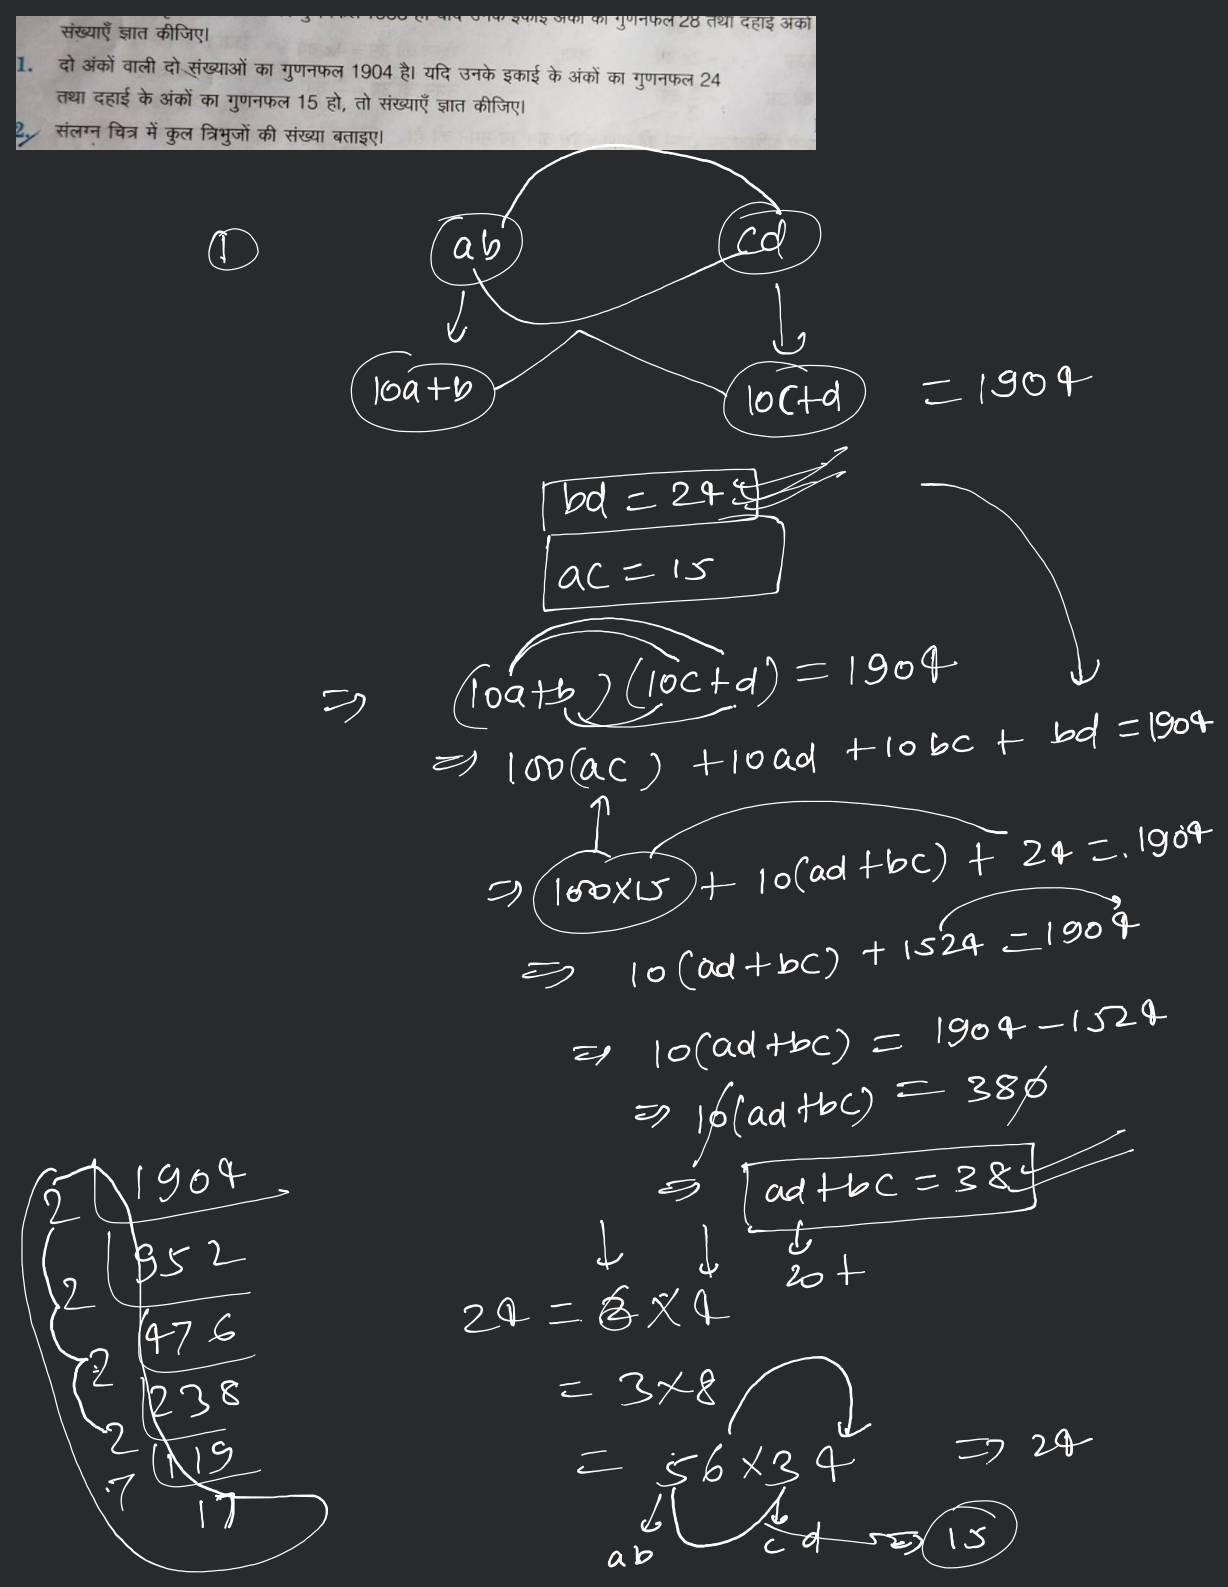 गुणनफल 28 तथा दहाई अंकों
संख्याएँ ज्ञात कीजिए।
1. दो अंकों वाली दो संख्याओं का गुणनफल 1904 है। यदि उनके इकाई के अंकों का गुणनफल 24
तथा दहाई के अंकों का गुणनफल 15 हो, तो संख्याएँ ज्ञात कीजिए।
2. संलग्न चित्र में कुल त्रिभुजों की संख्या बताइए।
1 ab cd
10a+b 10c+d = 1904
bd = 24
ac = 15
⇒ (10a+b)(10c+d) = 1904
⇒ 100(ac) + 10ad + 10bc + bd = 1904
⇒ 100×15 + 10(ad+bc) + 24 = 1904
⇒ 10(ad+bc) + 1524 = 1904
⇒ 10(ad+bc) = 1904 - 1524
⇒ 10(ad+bc) = 380
⇒ ad+bc = 38
20+
24 = 6×4
= 3×8
= 56×34 ⇒ 24
ab cd ⇒ 15
2 1904
2 952
2 476
2 238
7 119
17